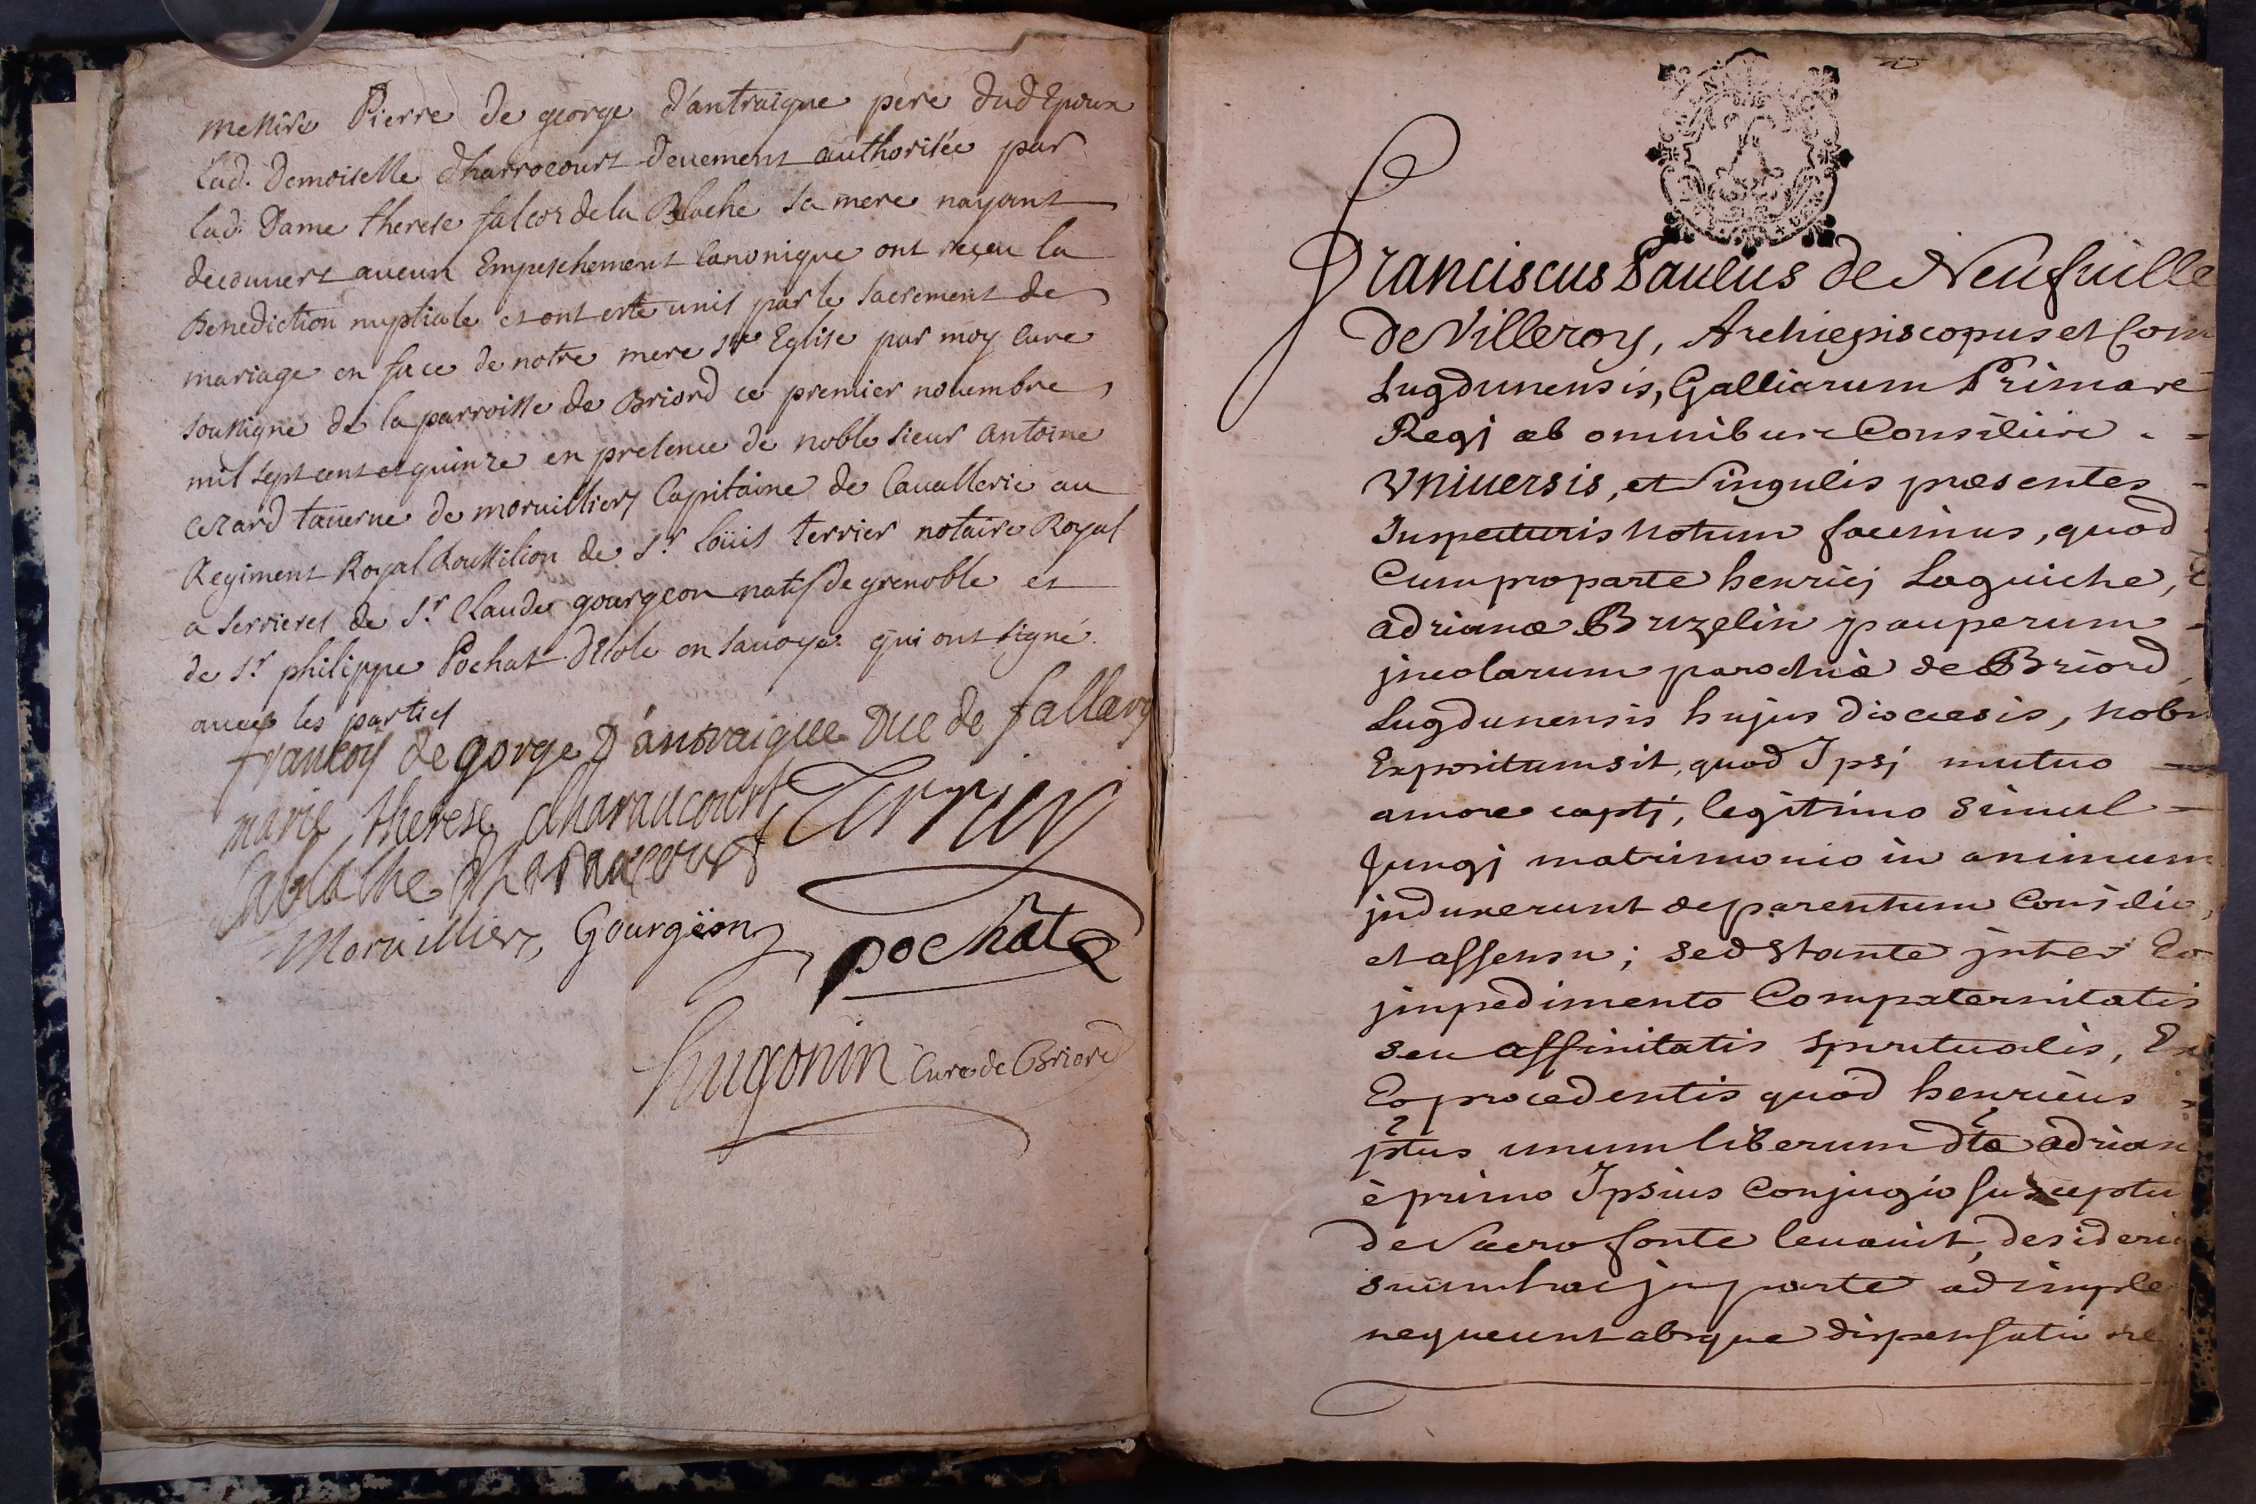 messire Pierre de george d'antraigue pere dud Epoux
lad. Demoiselle dharrocourt deuement authorisée par
lad. Dame therese falcoz de la Blache sa mere nayant
decouuert aucun Empeschement Canonique ont reçeu la
Benediction nuptiale et ont esté unis par le sacrement de
mariage en face de notre mere ste Eglise par moy Curé
soussigné de la parroisse de Briord ce premier nouembre
mil sept cent et quinze en presence de noble sieur antoine
cezard tauerne de moruilliers Capitaine de Cauallerie au
Regiment Royal Roussilion de Sr. Loüis terrier notaire Royal
a serrieres de Sr. Claude gourgeon natif de grenoble et
de Sr philippe Pochat d'Ecole en sauoye qui ont signé
auec les parties
francoy de gorge d'antraigue Duc de fallary
marie therese dharaucourt
Terrier
lablache dharaucourt
Moruilliers Gourgeon
pochat
hugonin Curé de Briord
Franciscus Paulus de Neufuille
de Villeroy, Archiepiscopus et Com
Lugdunensis, Galliarum Primas
Regj ab omnibus Consiliis
Vniuersis, et Singulis præsentes
Inspecturis notum facimus, quod
Cum pro parte henricj Laguiche, &
adrianæ Bruzelin pauperum
jncolarum parochiæ de Briord
Lugdunensis hujus diocesis, nobis
Expositum sit, quod Ipsj mutuo
amore captj, legitimo simul
Jungj matrimonio in animum
jnduxerunt de parentum Consilio,
et assensu; sed stante jnter Eos
jmpedimento Compaternitatis
seu affinitatis spiritualis, Ex
Eo procedentis quod henricus
jptus unum liberum dtæ adrian
è primo Ipsius Conjugio susceptu
de Sacro fonte leuauit, desideriu
suum hac jn parte adimple
nequeunt absque dispensatione